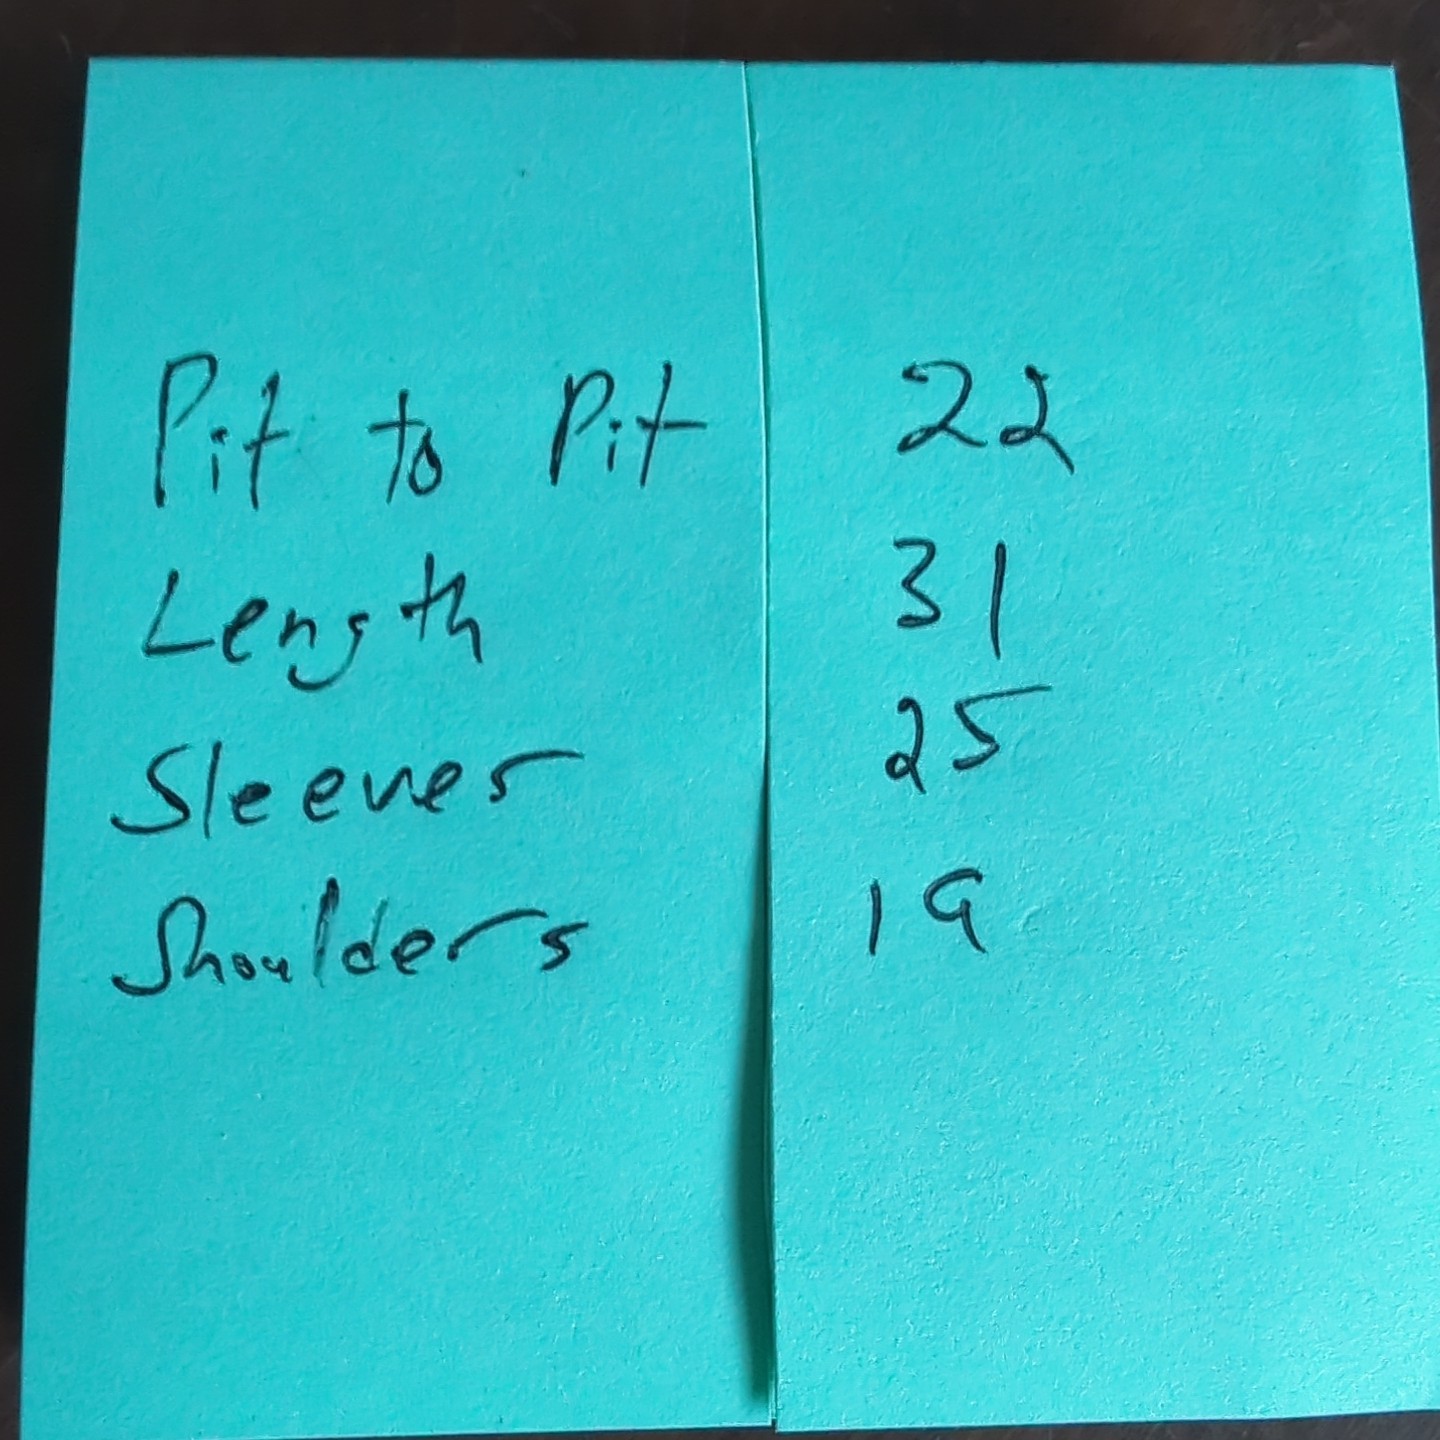 Pit to Pit 22
Length 31
Sleeves 25
Shoulders 19